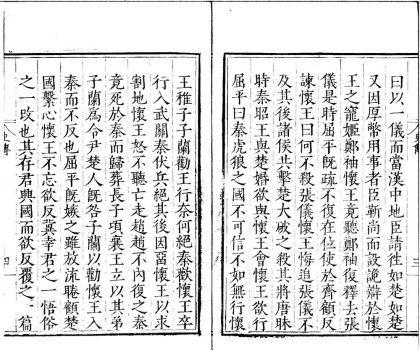 曰以一儀而當漢中地臣請徃如楚如楚
又因厚幣用事者臣靳尚而設詭辯於懷
王之寵姬鄭袖懷王竟聽鄭袖復釋去張
儀是時屈平旣疏不復在位使於齊顧反
諫懷王曰何不殺張儀懷王悔追張儀不
及其後諸侯共擊楚大破之殺其將唐昧
時秦昭王與楚婚欲與懷王會懷王欲行
屈平曰秦虎狼之國不可信不如無行懷
王稚子子蘭勸王行奈何絕秦歡懷王卒
行入武關秦伏兵絕其後因留懷王以求
割地懷王怒不聽亡走趙趙不內復之秦
竟死於秦而歸葬長子頃襄王立以其弟
子蘭爲令尹楚人旣咎子蘭以勸懷王入
秦而不反也屈平旣嫉之雖放流睠顧楚
國繫心懷王不忘欲反冀幸君之一悟俗
之一攺也其存君興國而欲反覆之一篇
四